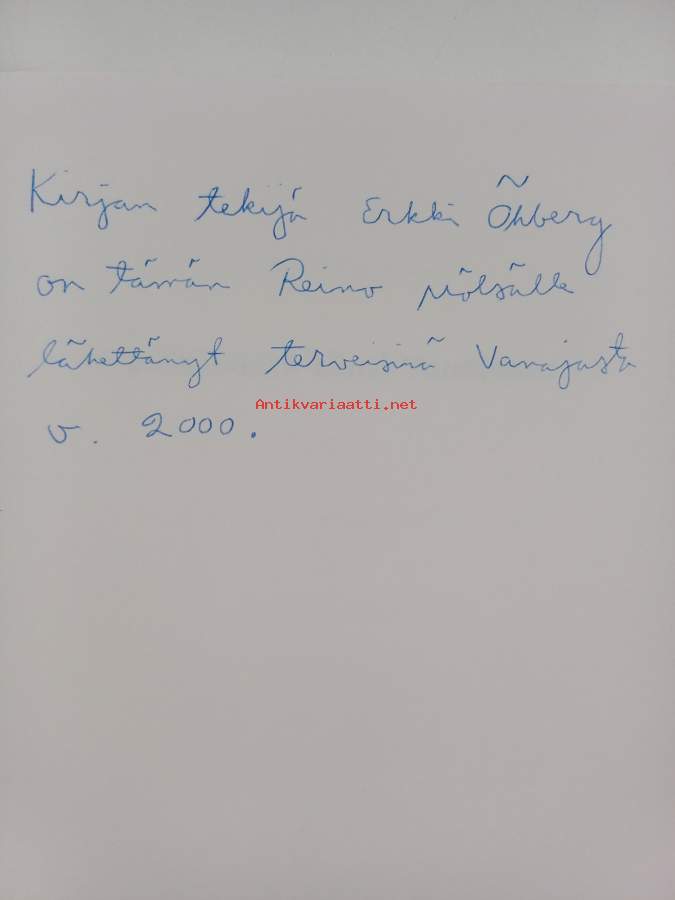 Kirjan tekijä Erkki Öhberg
on tämän Reino Mölsälle
lähettänyt terveisinä Vanajasta
Antikvariaatti.net
v. 2000.